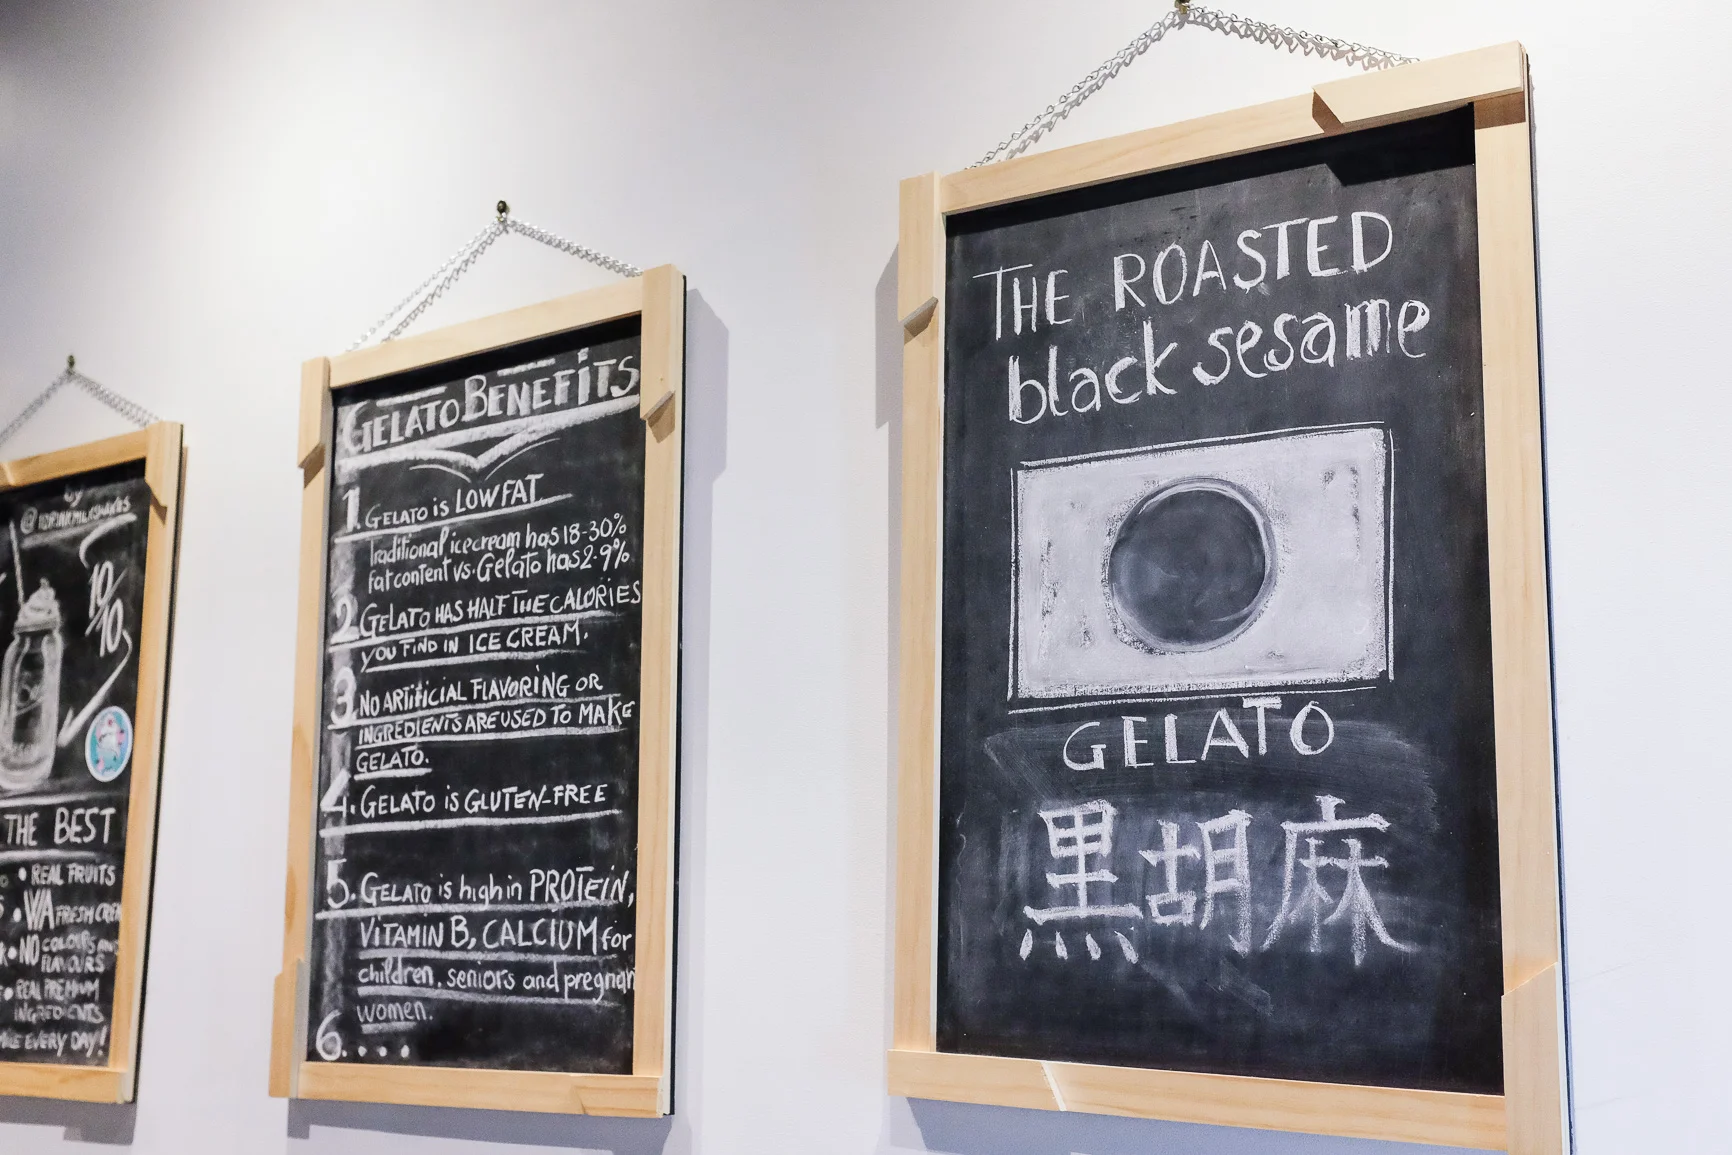 by
@IDRINKMILKSHAKES
10/10
THE BEST
• REAL FRUITS
• VIA FRESH CREM
• NO COLOURS AND
FLAVOURS
• REAL PREMIUM
INGREDIENTS
EVERY DAY!
GELATO BENEFITS
1. GELATO is LOW FAT
Traditional icecream has 18-30%
fat content vs. Gelato has 2-9%
2 GELATO HAS HALF THE CALORIES
YOU FIND IN ICE CREAM.
3 NO ARTIFICIAL FLAVORING OR
INGREDIENTS ARE USED TO MAKE
GELATO.
4. GELATO is GLUTEN-FREE
5. GELATO is high in PROTEIN,
VITAMIN B, CALCIUM for
children, seniors and pregnan
women.
6. . . .
THE ROASTED
black sesame
GELATO
黒胡麻